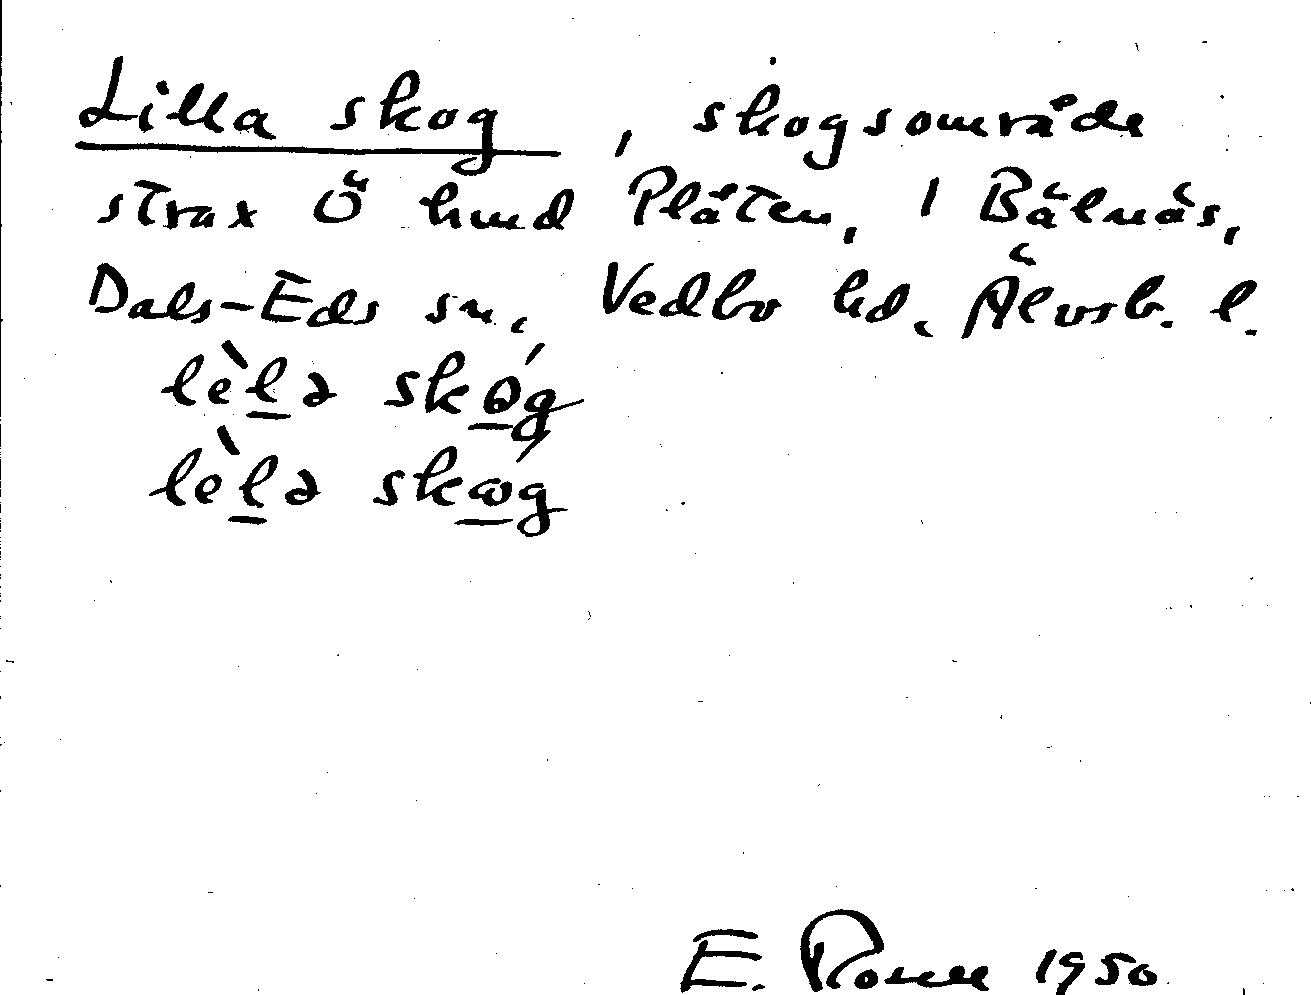 Lilla skog, skogsområde
strax Ö hmd Plåten, 1 Bälnäs,
Dals-Eds sn, Vedbo hd, Älvsb. l.
lèlə skóg
lèlə skǿg
E. 1950